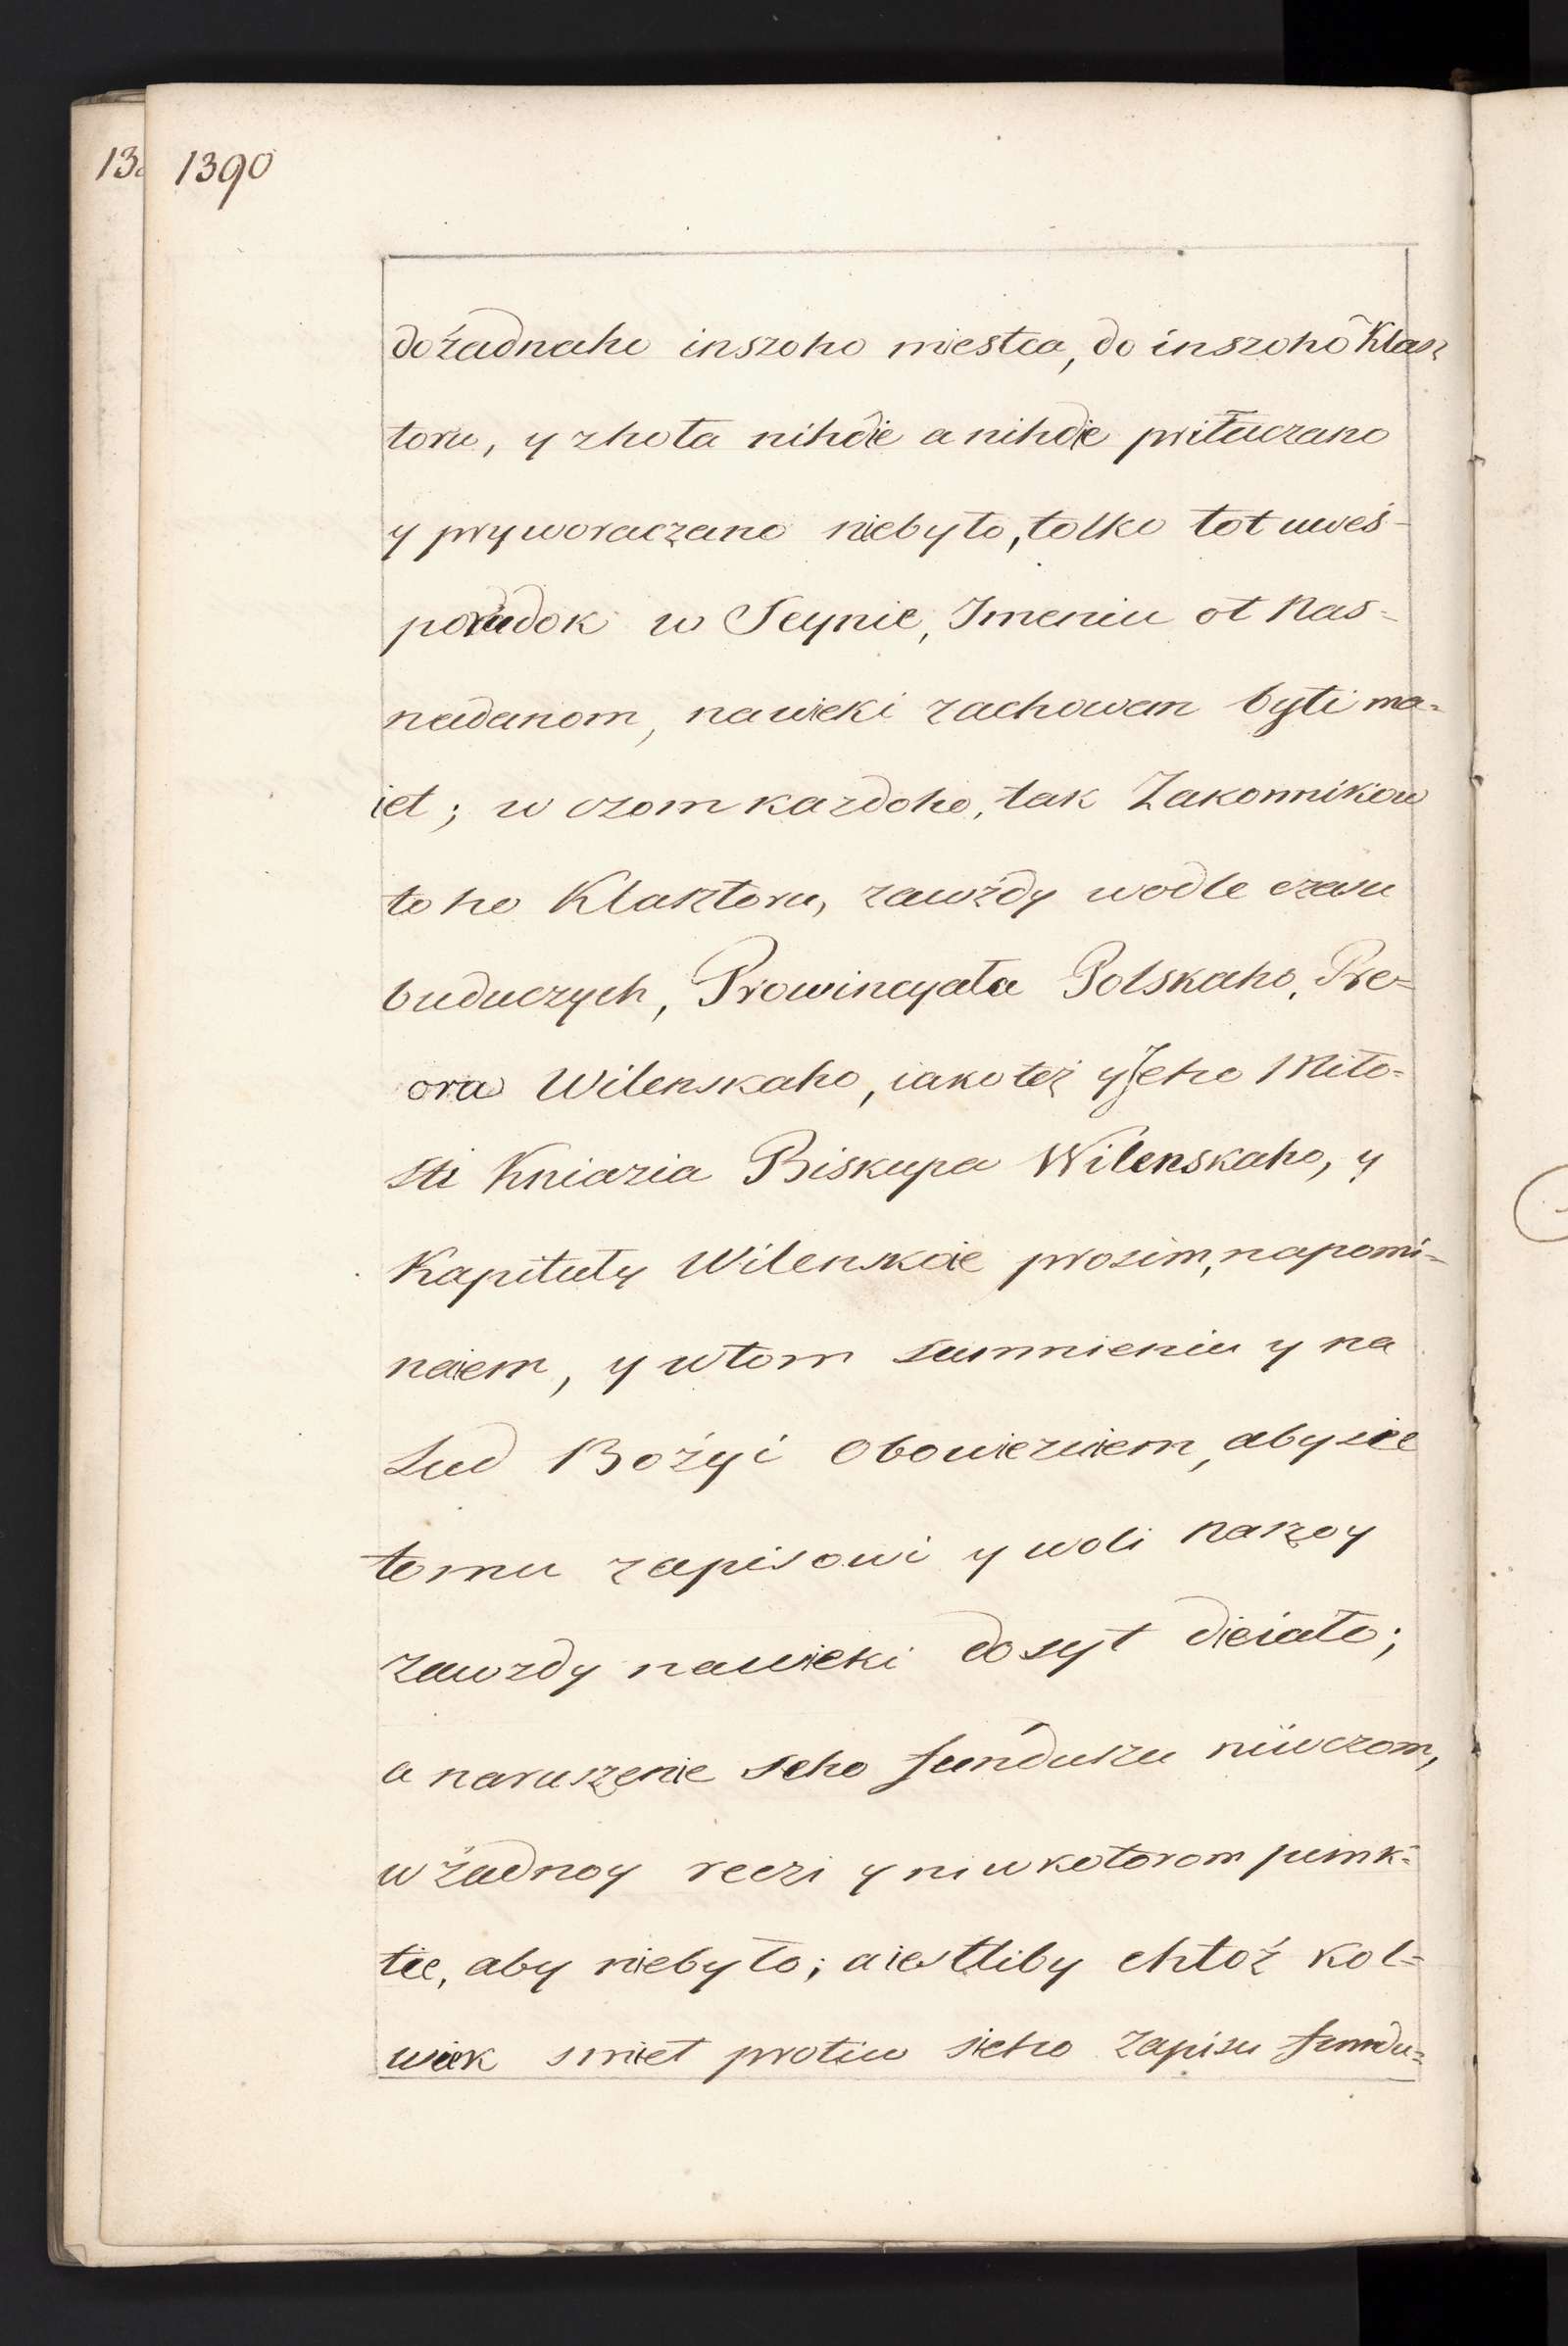 13
1390
dożadnaho inszoho miestca, do inszoho Klasz
toru, y zhoła nihdie a nihdie priłuczano
y pryworaczano niebyło, tolko tot uweś-
poradok w Seynie, Jmeniu ot Nas-
nadanom, nawieki zachowan byti ma-
iet; w czom kazdoho, tak Zakonnikow
toho Klasztoru, zawżdy wodle czasu
buduczych, Prowincyała Polskaho, Pre-
ora Wilenskaho, iakoteż y Jeho Miło-
sti Kniazia Biskupa Wilenskaho, y
Kapituły Wilenskoie prosim, napomi-
naiem, y wtom sumnieniu y na
Sud Bożyi obowiezuiem, aby sie
tomu zapisowi y woli naszoy
zawzdy nawieki dosyt dieiało;
a naruszenie seho funduszu niwczom,
w żadnoy reczi y ni w kotorom punk-
tie, aby niebyło; aiestliby chtoż kol-
wiek smiet protiw sieho Zapisu fundu-